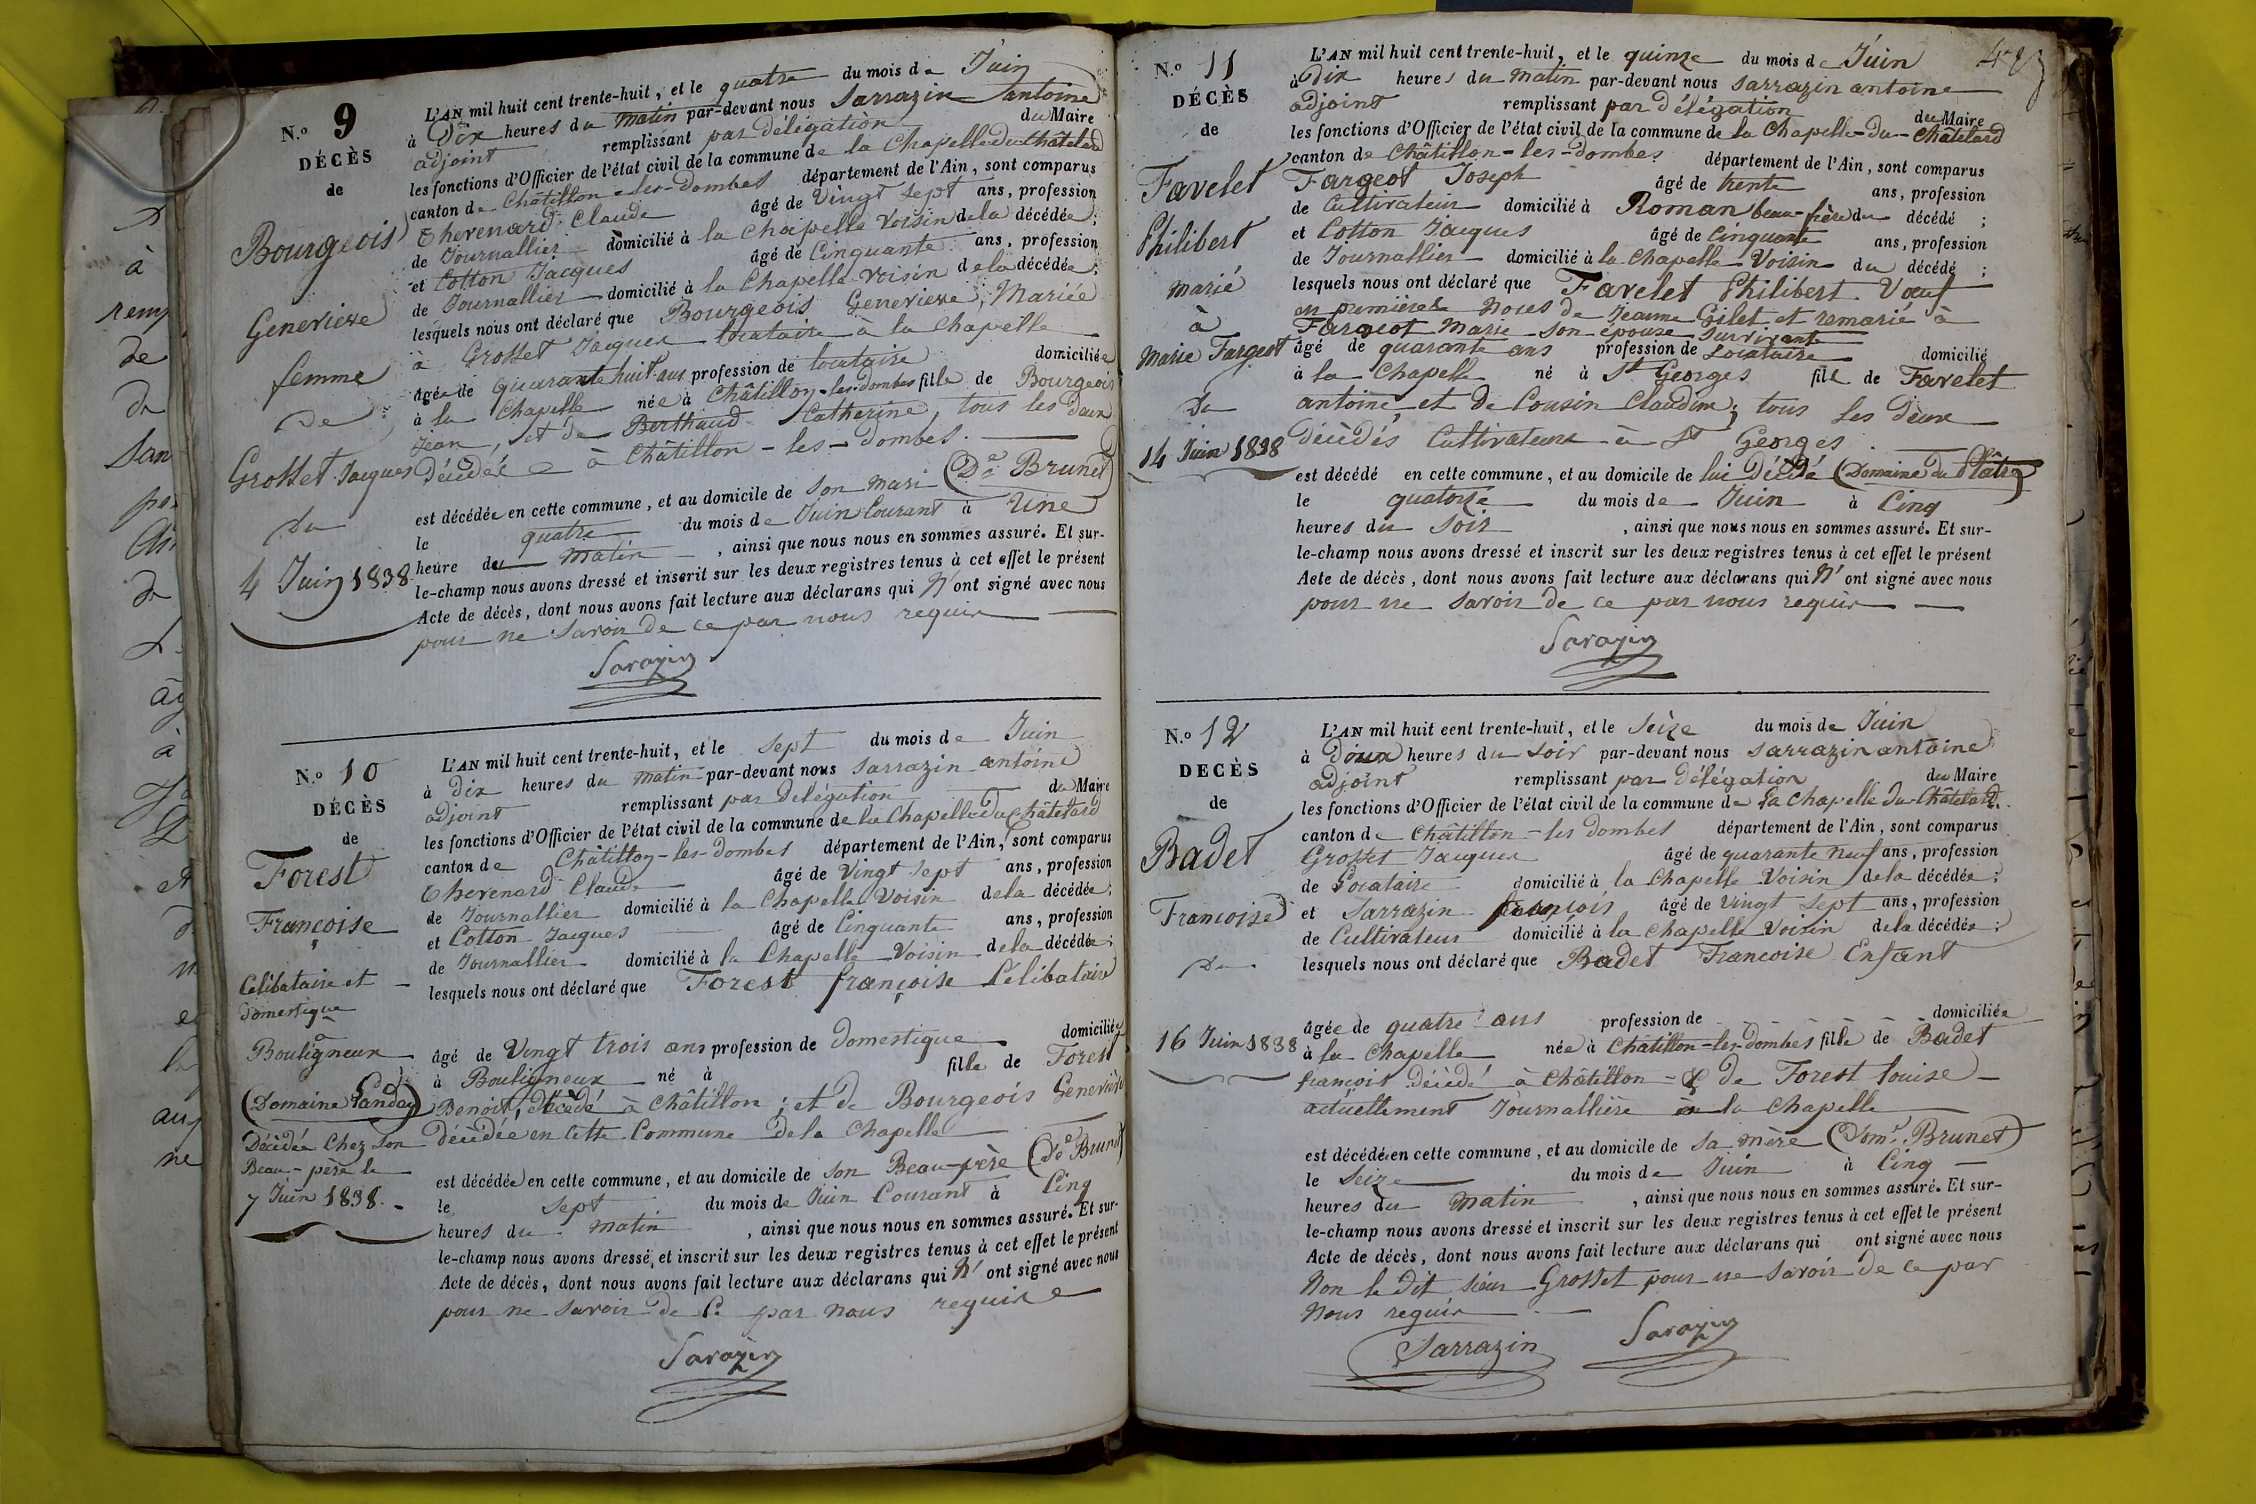 N.º 9
DÉCÈS
de
Bourgeois
Genevieve
femme
de
Grosset Jacques
Du
4 Juin 1838
L'AN mil huit cent trente-huit, et le quatre du mois de Juin
à Dix heures du matin par-devant nous Sarrazin antoine
adjoint remplissant par délégation du Maire
les fonctions d'Officier de l'état civil de la commune de la Chapelle du Châtelard
canton de Châtillon-les-Dombes département de l'Ain, sont comparus
Chevenard Claude âgé de Vingt Sept ans, profession
de Journallier domicilié à la Chapelle Voisin de la décédée;
et Cotton Jacques âgé de Cinquante ans, profession
de Journallier domicilié à la Chapelle Voisin de la décédée;
lesquels nous ont déclaré que Bourgeois Genevieve, Mariée
à Grosset Jacques locataire à la Chapelle
âgée de quarante huit ans profession de locataire domiciliée
à la Chapelle née à Châtillon-les-dombes fille de Bourgeois
Jean, et de Berthaud Catherine, tous les deux
Décédés à Châtillon-les-Dombes.
est décédée en cette commune, et au domicile de Son Mari (De Brunet)
le quatre du mois de Juin Courant à Une
heure du Matin, ainsi que nous nous en sommes assuré. Et sur-
le-champ nous avons dressé et inscrit sur les deux registres tenus à cet effet le présent
Acte de décès, dont nous avons fait lecture aux déclarans qui N' ont signé avec nous
pour ne Savoir de ce par nous requis
Sarazin
N.º 10
DÉCÈS
de
Forest
Françoise
Célibataire et
domestique
à
Bouligneux
(Domaine Panday)
Décédée Chez Son
Beau-père le
7 Juin 1838.
L'AN mil huit cent trente-huit, et le Sept du mois de Juin
à dix heures du matin par-devant nous Sarrazin antoine
adjoint remplissant par délégation du Maire
les fonctions d'Officier de l'état civil de la commune de la Chapelle du Châtelard
canton de Châtillon-les-dombes département de l'Ain, sont comparus
Chevenard Claude âgé de Vingt Sept ans, profession
de Journallier domicilié à la Chapelle Voisin de la décédée;
et Cotton Jacques âgé de Cinquante ans, profession
de Journallier domicilié à la Chapelle Voisin de la décédée;
lesquels nous ont déclaré que Forest françoise Célibataire
âgé de Vingt trois ans profession de Domestique domiciliée
à Bouligneux né à fille de Forest
Benoit, décédé à Châtillon; et de Bourgeois Genevieve
décédée en Cette Commune de la Chapelle
est décédée en cette commune, et au domicile de son Beau-père (De Brunet)
le Sept du mois de Juin Courant à Cinq
heures du Matin, ainsi que nous nous en sommes assuré. Et sur-
le-champ nous avons dressé, et inscrit sur les deux registres tenus à cet effet le présent
Acte de décès, dont nous avons fait lecture aux déclarans qui N' ont signé avec nous
pour ne Savoir de Ce par nous requise
Sarazin
N.º 11
DÉCÈS
de
Favelet
Philibert
marié
à
Marie Fargeot
Du
14 Juin 1838
L'AN mil huit cent trente-huit, et le quinze du mois de Juin
à Dix heures du matin par-devant nous Sarrazin antoine
adjoint remplissant par délégation du Maire
les fonctions d'Officier de l'état civil de la commune de la Chapelle-du-Châtelard
canton de Châtillon-les-dombes département de l'Ain, sont comparus
Fargeot Joseph âgé de trente ans, profession
de Cultivateur domicilié à Roman beau-frère du décédé;
et Cotton Jacques âgé de Cinquante ans, profession
de Journallier domicilié à la Chapelle Voisin du décédé;
lesquels nous ont déclaré que Favelet Philibert Vœuf
en premières Noces de Jeanne Gilet et remarié à
Fargeot Marie son épouse Survivante
âgé de quarante ans profession de Locataire domicilié
à la Chapelle né à St Georges fils de Favelet
antoine et de Cousin Claudine; tous les deux
décédés Cultivateurs à St Georges
est décédé en cette commune, et au domicile de lui Décédé (Domaine du Plâtre)
le quatorze du mois de Juin à Cinq
heures du Soir, ainsi que nous nous en sommes assuré. Et sur-
le-champ nous avons dressé et inscrit sur les deux registres tenus à cet effet le présent
Acte de décès, dont nous avons fait lecture aux déclarans qui N' ont signé avec nous
pour ne Savoir de ce par nous requis
Sarazin
N.º 12
DECÈS
de
Badet
Francoise
Du
16 Juin 1838
L'AN mil huit cent trente-huit, et le Seize du mois de Juin
à Doux heures du Soir par-devant nous Sarrazin antoine
adjoint remplissant par délégation du Maire
les fonctions d'Officier de l'état civil de la commune de la Chapelle du Châtelard.
canton de Châtillon-les dombes département de l'Ain, sont comparus
Grosset Jacques âgé de quarante neuf ans, profession
de Locataire domicilié à la Chapelle Voisin de la décédée;
et Sarrazin françois âgé de Vingt Sept ans, profession
de Cultivateur domicilié à la Chapelle Voisin de la décédée;
lesquels nous ont déclaré que Badet Francoise Enfant
âgée de quatre ans profession de domiciliée
à la Chapelle née à Châtillon-les-dombes fille de Badet
françois Décédé à Châtillon & de Forest louise
actuellement Journallière à la Chapelle
est décédée en cette commune, et au domicile de sa mère (Domne Brunet)
le Seize du mois de Juin à Cinq
heures du Matin, ainsi que nous nous en sommes assuré. Et sur-
le-champ nous avons dressé et inscrit sur les deux registres tenus à cet effet le présent
Acte de décès, dont nous avons fait lecture aux déclarans qui ont signé avec nous
Non le Dit Sieur Grosset pour ne Savoir de ce par
Nous requis
Sarrazin Sarazin